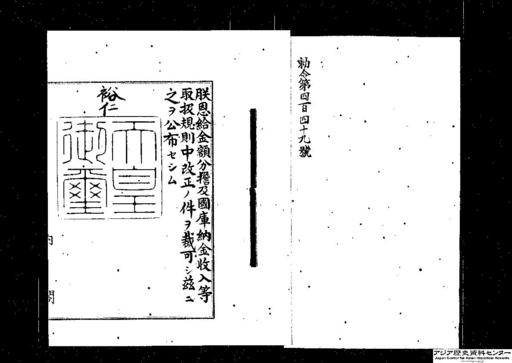 勅令第四百四十九號
朕恩給金額分擔及國庫納金收入等
取扱規則中改正ノ件ヲ裁可シ茲ニ
之ヲ公布セシム
裕仁
天皇御璽
内閣
アジア歴史資料センター
Japan Center for Asian Historical Records